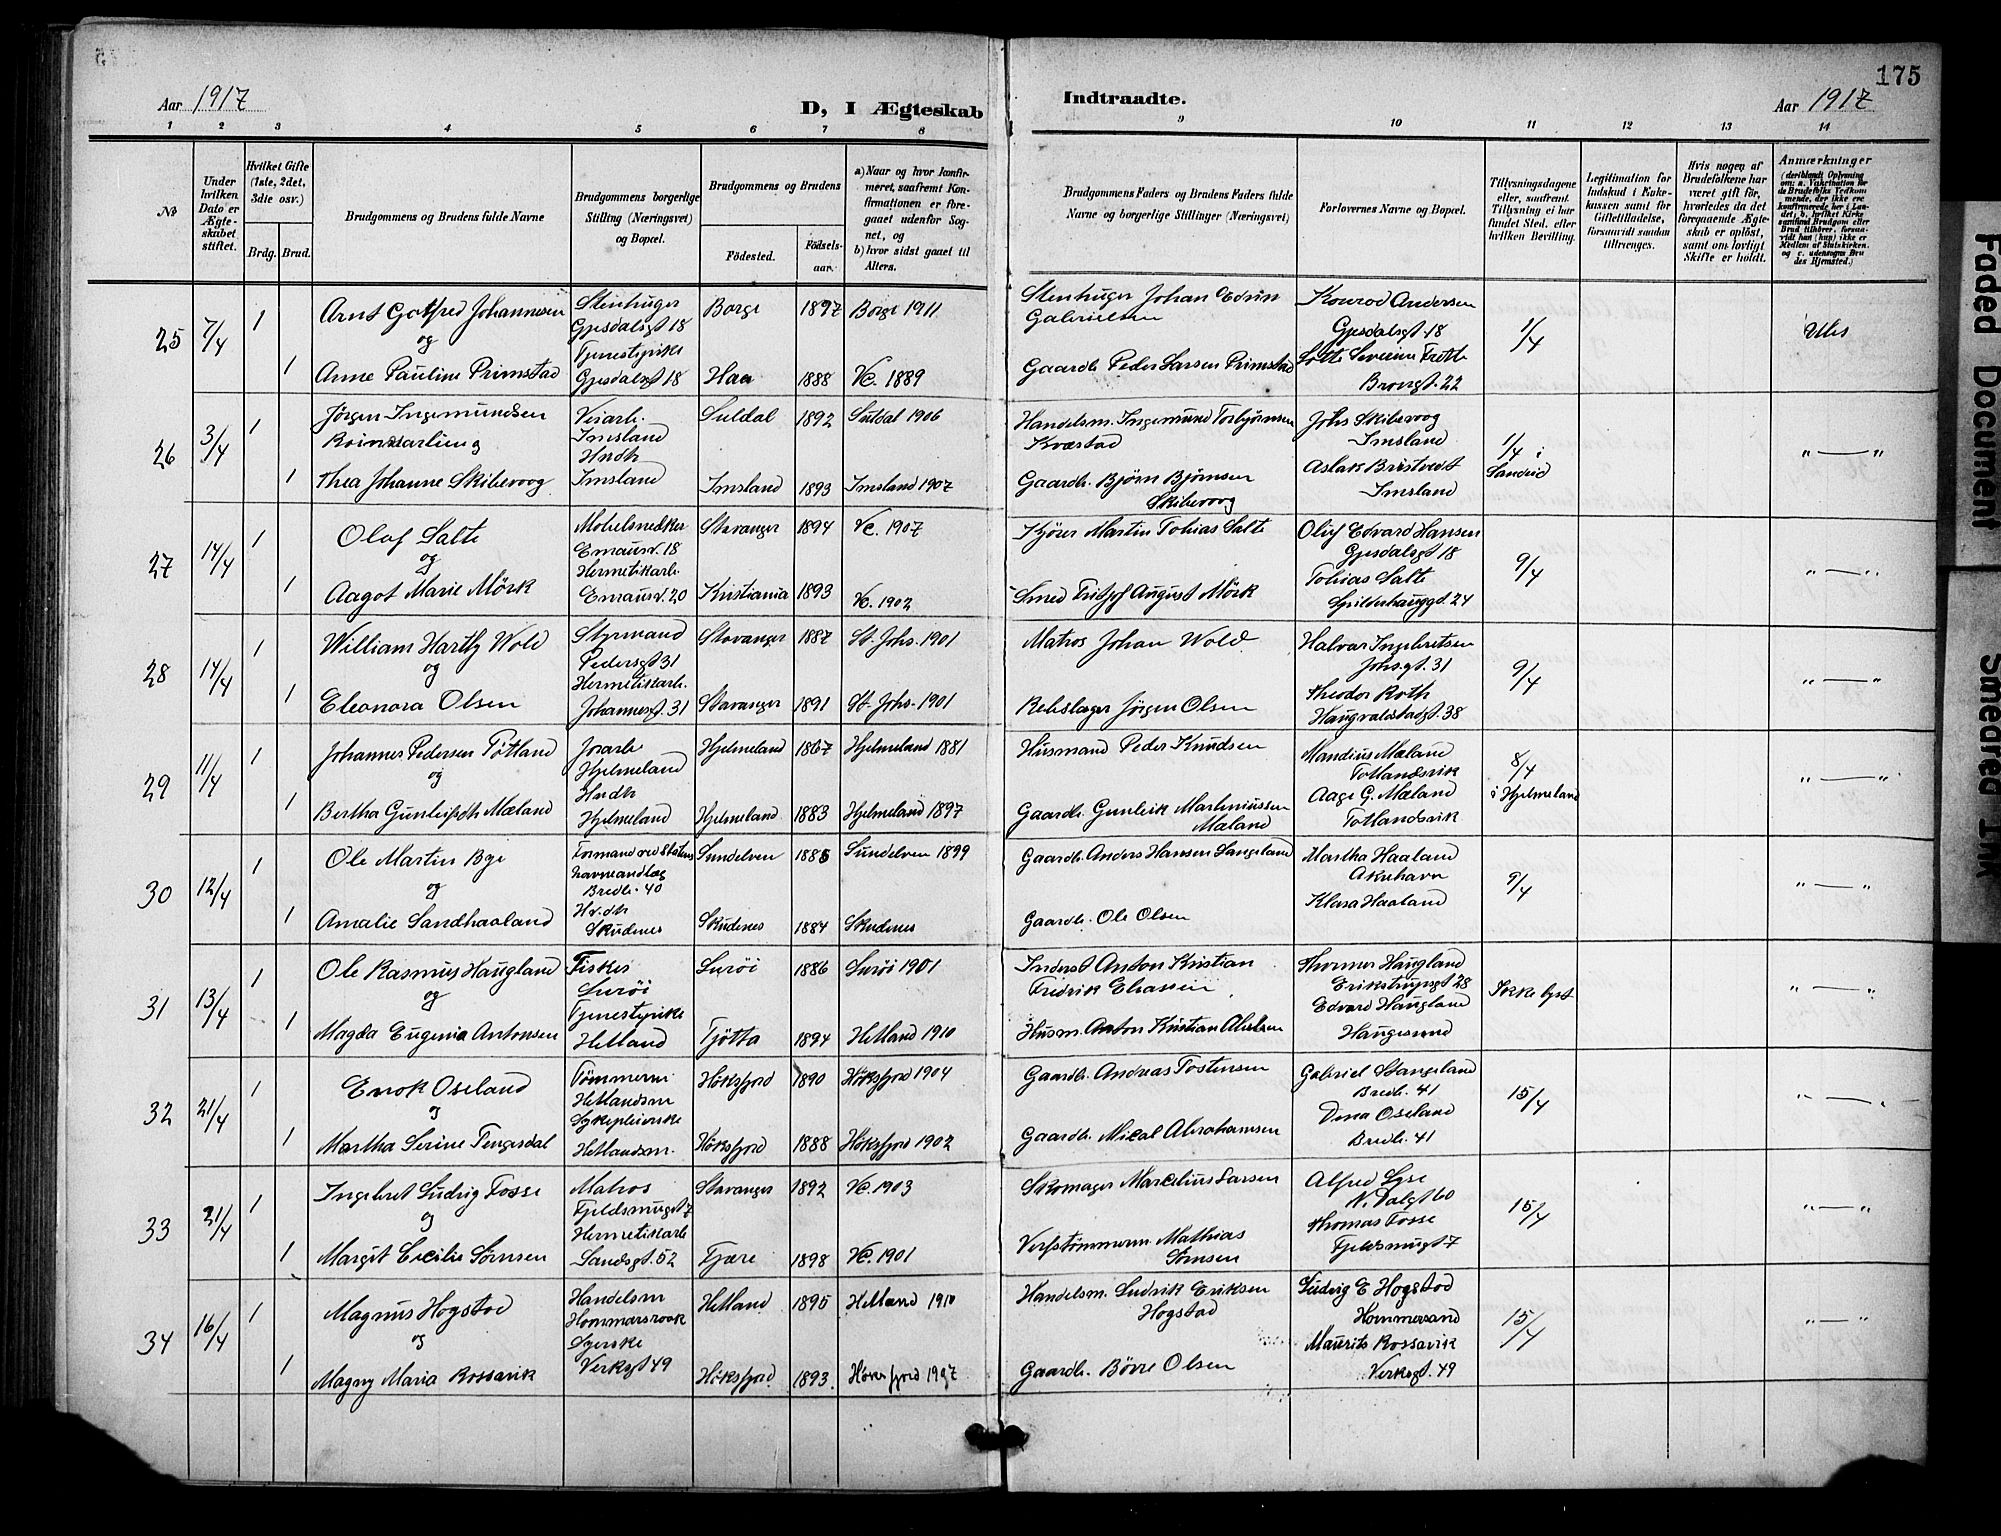 175
Aar 1917
D, I Ægteskab
Indtraadte.
Aar 1917
1 2 3 4 5 6 7 8 9 10 11 12 13 14
№
Under hvilken Dato er Ægteskabet stiftet.
Hvilket Gifte (1ste, 2det, 3die osv.)
Brdg. Brud.
Brudgommens og Brudens fulde Navne
Brudgommens borgerlige Stilling (Næringsvei) og Bopæl.
Brudgommens og Brudens
Födested.
Födselsaar.
a) Naar og hvor konfirmeret, saafremt Konfirmationen er foregaaet udenfor Sognet, og
b) hvor sidst gaaet til Alters.
Brudgommens Faders og Brudens Faders fulde Navne og borgerlige Stillinger (Næringsvei)
Forlovernes Navne og Bopæl.
Tillysningsdagene eller, saafremt Tillysning ei har fundet Sted, efter hvilken Bevilling.
Legitimation for Indskud i Enkekassen samt for Giftetilladelse, forsaavidt saadan tiltrænges.
Hvis nogen af Brudefolkene har været gift før, hvorledes da det foregaaende Ægteskab er oplöst, samt om lovligt Skifte er holdt.
Anmærkninger
25 7/4 1 Arnt Gotfred Johannesen Stenhuger Gjesdalsgt 18 Borge 1897 Borge 1911 Stenhuger Johan Edvin Gabrielsen Konrad Andersen Gjesdalsgt. 18 1/4 Utes
og
1 Anne Pauline Primstad Tjenestepike Gjesdalsgt 18 Haa 1888 Vc. 1889 Gaardb. Peder Larsen Primstad Lotte Severine Frette 22
26 3/4 1 Jørgen Ingemundsen Veiarb. Imsland Suldal 1892 Suldal 1906 Handelsm. Ingemund Torbjørnsen Kvæstad Johs Skibevoog Imsland 1/4 i Sandeid " — "
1 Thea Johanne Skibevoog Husdh Imsland Imsland 1893 Imsland 1907 Gaardb. Bjørn Bjørnsen Skibevoog Aslak Imsland
27 14/4 1 Olaf Salte Møbelsnedker Emausv. 18 Stavanger 1894 Vc. 1907 Kjører Martin Tobias Salte Edvard Hansen Gjesdalsgt 18 9/4 " — "
og
1 Aagot Marie Mörk Hermetikarb. Emausv. 20 Kristiania 1893 Vc. 1902 Smed August Mörk Tobias Salte 24
28 14/4 1 William Wold Styrmand Pedersgt 31 Stavanger 1887 St. Johs. 1901 Matros Johan Wold Halvar Ingebretsen Johs.gt. 31 9/4 " — "
og
1 Eleonora Olsen Hermetikarb. Johannesgt. 31 Stavanger 1891 St. Johs. 1901 Rebslager Jörgen Olsen Theodor Roth Haugvaldstadgt. 38
29 11/4 1 Johannes Pedersen Tøtland Jorarb Hjelmeland Hjelmeland 1867 Hjelmeland 1881 Husmand Peder Knudsen Mandius Mæland Totlandsvik 8/4 i Hjelmeland " — "
og
1 Bertha Mæland Husdh Hjelmeland Hjelmeland 1883 Hjelmeland 1897 Gaardb. Gunleik Martiniussen Mæland Aage G. Mæland Totlandsvik
30 12/4 1 Ole Martin Bye Formand ved Statens havneanlæg Bredb. 40 Sundelven 1885 Sundelven 1899 Gaardb. Anders Hansen Martha Haaland Akrehavn 9/4 " — "
og
1 Amalie Sandhaaland Skudenes Skudenes 1884 Skudenes Gaardb. Ole Olsen Klara Haaland
31 13/4 1 Ole Rasmus Haugland Fisker Surøi Surøi 1886 Surøi 1901 Inderst Anton Kristian Fredrik Eliassen Thormer Haugland Erikstrupsgt 28 Ikke lyst " — "
og
1 Magda Eugenia Antonsen Tjenestepike Hetland Tjötta 1894 Hetland 1910 Husm. Anton Kristian Edvard Haugland Haugesund
32 21/4 1 Enok Oseland Tømmerm Hetlandsm Höksfjord 1890 Höksfjord 1904 Gaardb. Andreas Tostensen Gabriel Stangeland Bredb. 41 15/4 " — "
og
1 Martha Serine Tengesdal Sykepleierske Hetlandsm. Höksfjord 1888 Höksfjord 1902 Gaardb. Mical Abrahamsen Dina Oseland Bredb. 41
33 21/4 1 Ingebret Ludvig Fosse Matros Fjeldsmugt 7 Stavanger 1892 Vc. 1903 Skomager Marcelius Larsen Alfred Lyse N. Dalgt 60 15/4 " — "
og
1 Margit Cecilie Sørnsen Hermetikarb Sandsgt. 52 Fjære 1898 Vc. 1901 Verfstømmerm Mathias Sørnsen Thomas Fosse Fjeldsmugt 7
34 16/4 1 Magnus Hogstad Handelsm Hommarsraak Hetland 1895 Hetland 1910 Handelsm. Ludvik Eriksen Hogstad Ludvig E Hogstad Hommersand 15/4 " — "
og
1 Magny Maria Rossavik Syerske Verksgt 49 Höksfjord 1893 Gaardb. Börre Olsen Maurits Rossavik Verksgt. 49
Faded Document
Smeared Ink